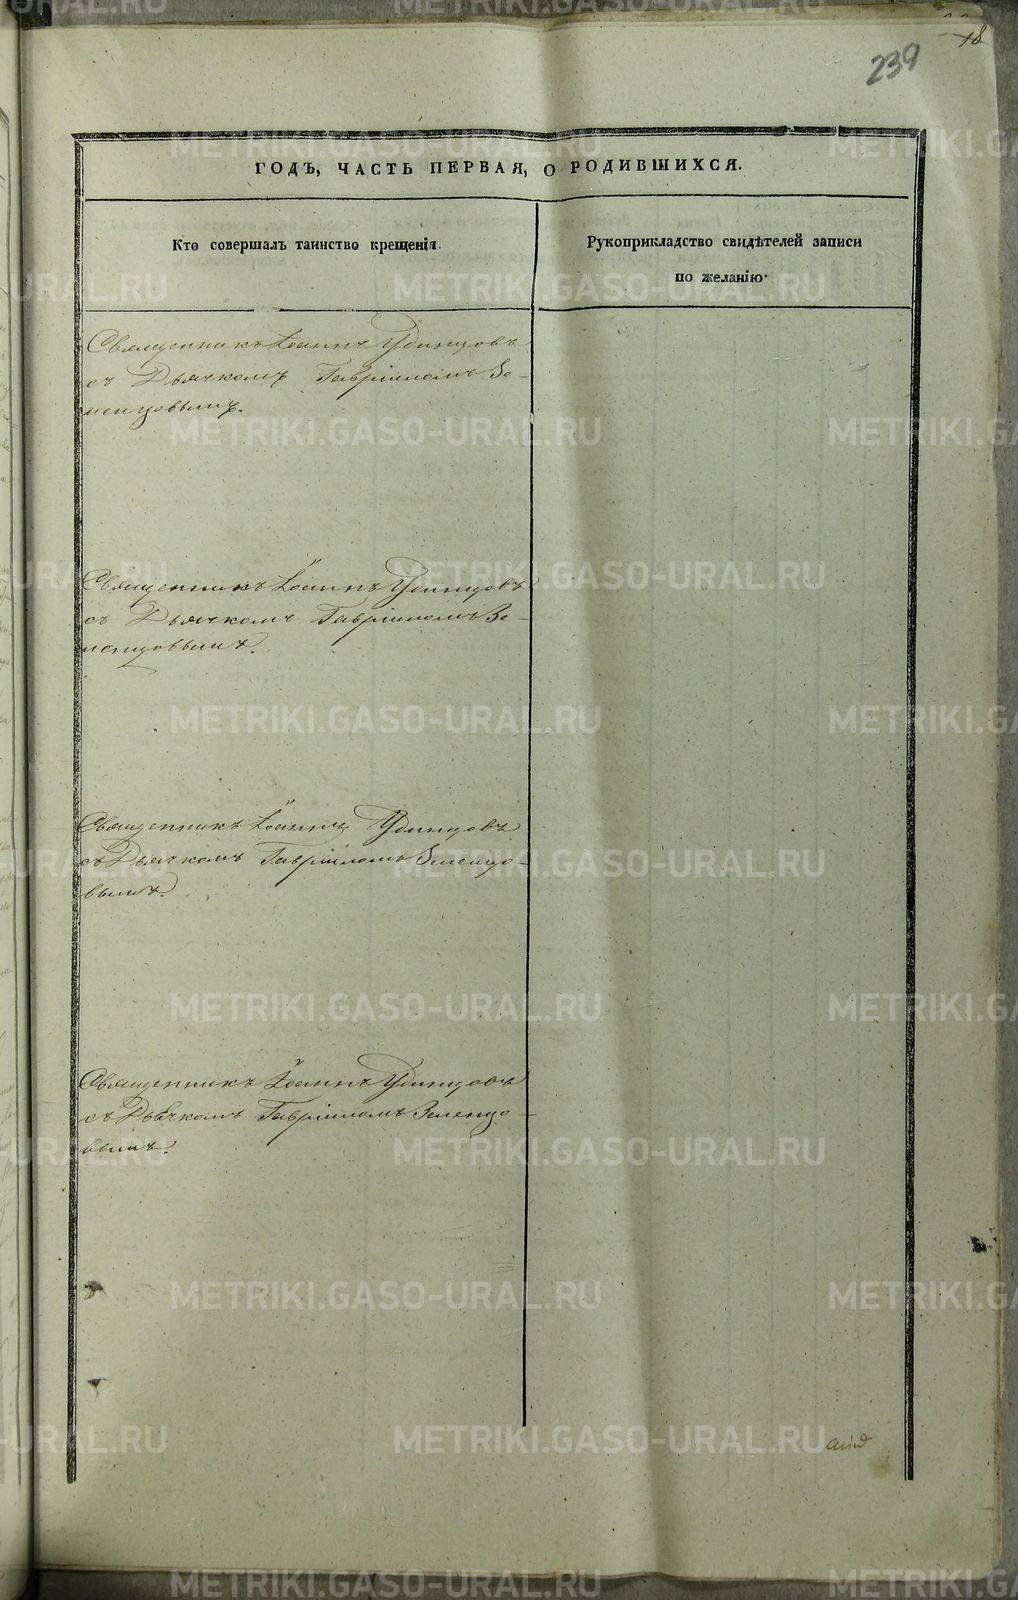 18
239
ГОДЪ, ЧАСТЬ ПЕРВАЯ, О РОДИВШИХСЯ.
Кто совершалъ таинство крещенія.
Рукоприкладство свидѣтелей записи
по желанію.
Священникъ Іоаннъ Удинцовъ
съ Дьячкомъ Гавріиломъ Зе-
ленцовымъ.
Священникъ Іоаннъ Удинцовъ
съ Дьячкомъ Гавріиломъ Зе-
ленцовымъ.
Священникъ Іоаннъ Удинцовъ
съ Дьячкомъ Гавріиломъ Зеленцо-
вымъ.
Священникъ Іоаннъ Удинцовъ
съ Дьячкомъ Гавріиломъ Зеленцо-
вымъ.
METRIKI.GASO-URAL.RU